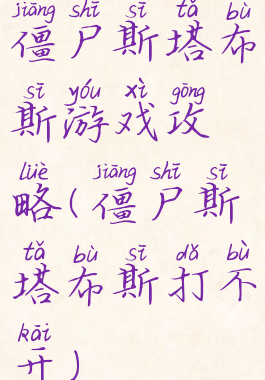 jiāng shī sī tǎ bù
僵尸斯塔布
sī yóu xì gōng
斯游戏攻
lüè jiāng shī sī
略(僵尸斯
tǎ bù sī dǎ bù
塔布斯打不
kāi
开)